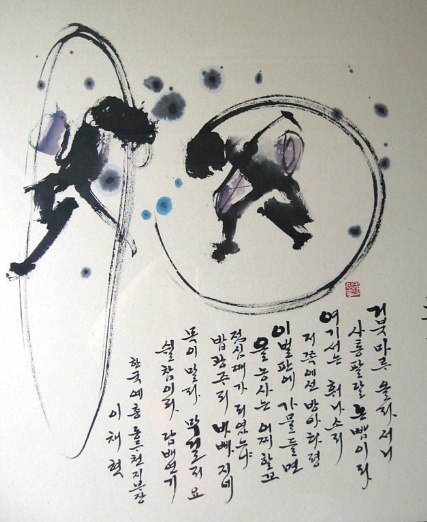 거북마루 올라서니
사통팔달 논뺌이라
여기서는 휘나소리
저쪽에선 방아타령
이 벌판에 가뭄들면
올 농사는 어찌할꼬
점심때가 되었느냐
밥광주리 바삐 지네
목이 말라 막걸리요
쉴참이라 담배연기
한국예총 통천지부장
이채혁